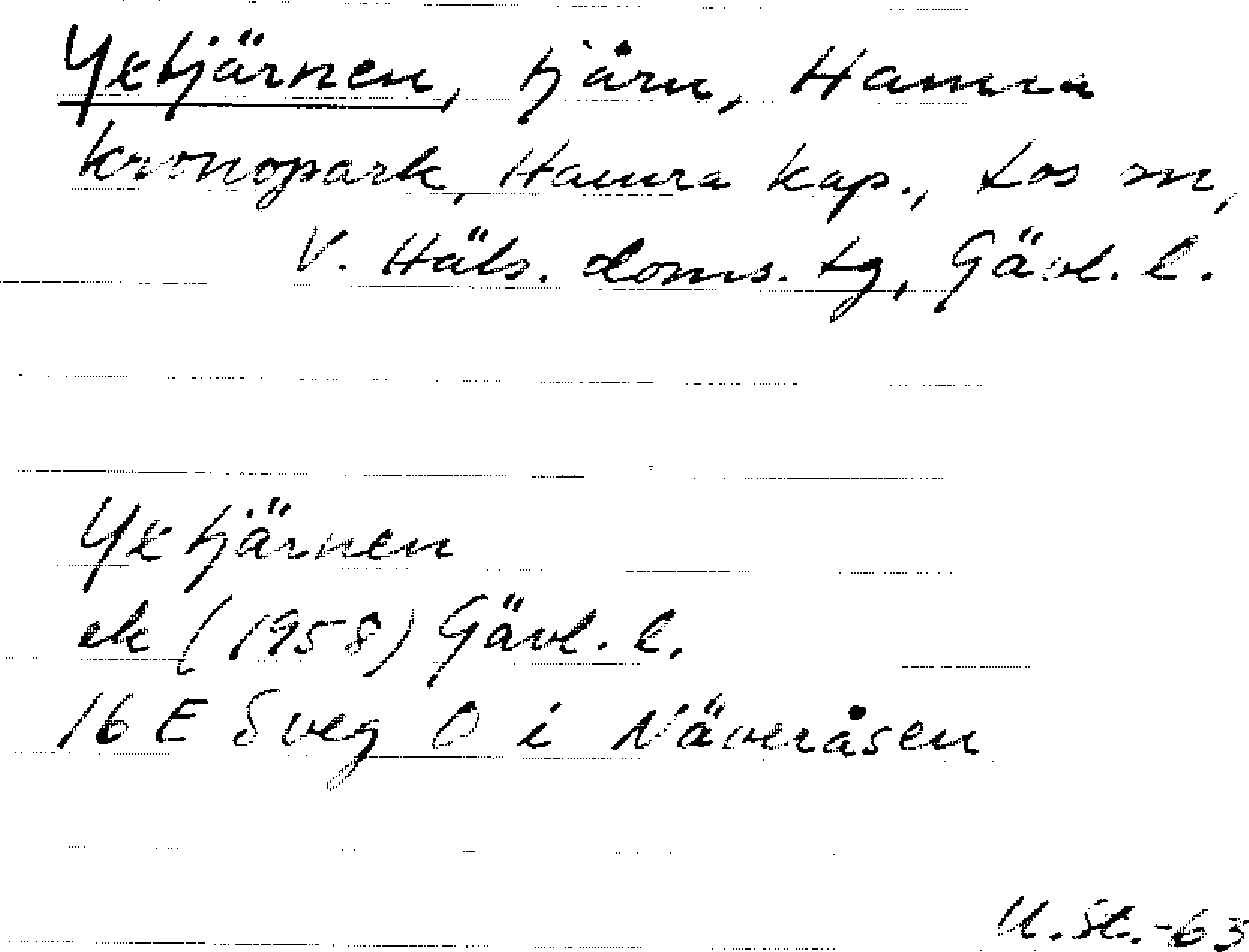 Yxtjärnen, tjärn, Hamra
kronopark, Hamra kap., Los sn,
V. Häls. doms. tg, Gävl. l.
Yxtjärnen
ek (1958) Gävl. l.
16 E Sveg O i Näveråsen
U. St. -63